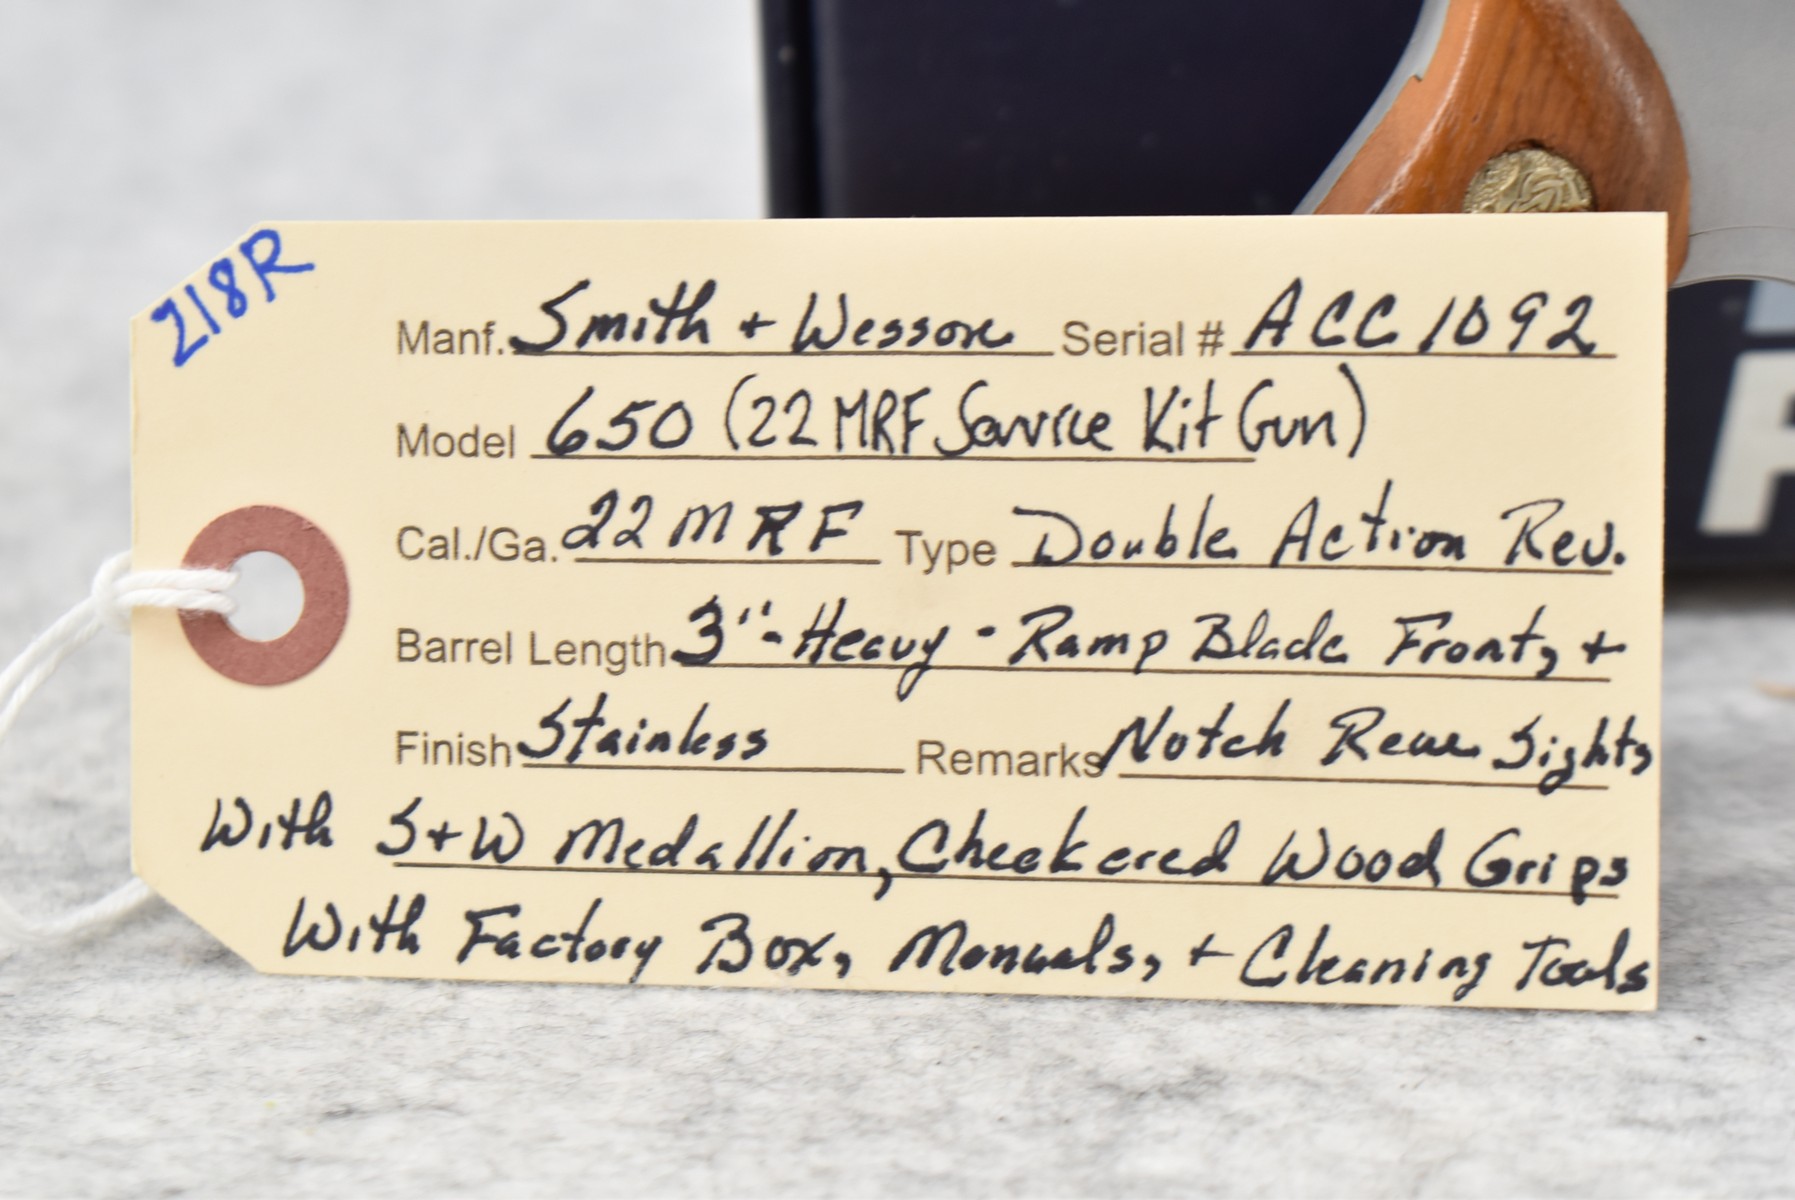 218R
Manf. Smith + Wesson Serial # ACC1092
Model 650 (22 MRF Service Kit Gun)
Cal./Ga. 22 MRF Type Double Action Rev.
Barrel Length 3"- Heavy - Ramp Blade Front, +
Finish Stainless Remarks Notch Rear Sights
With S+W Medallion, Checkered Wood Grips
With Factory Box, Manuals, + Cleaning Tools